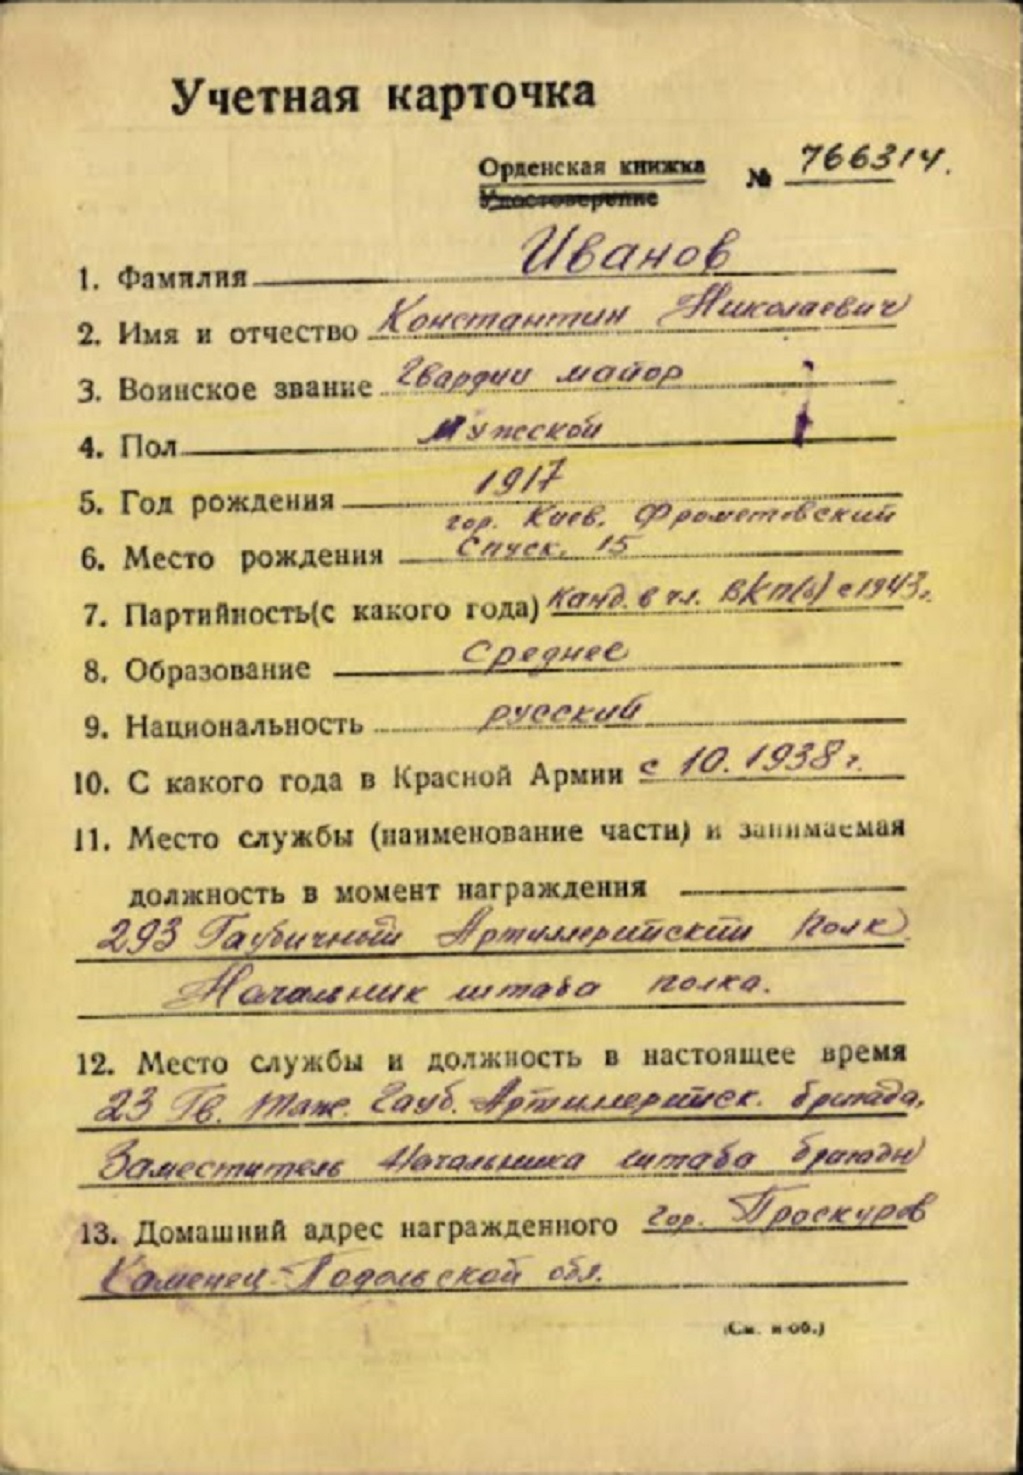 Учетная карточка
Орденская книжка № 766314.
Удостоверение
1. Фамилия Иванов
2. Имя и отчество Константин Николаевич
3. Воинское звание Гвардии майор
4. Пол Мужской
5. Год рождения 1917
гор. Киев, Фрометовский
6. Место рождения Спуск, 15
7. Партийность(с какого года) Канд. в чл. ВКП(б) с 1943г.
8. Образование Среднее
9. Национальность русский
10. С какого года в Красной Армии с 10. 1938 г.
11. Место службы (наименование части) и занимаемая
должность в момент награждения
293 Гаубичный Артиллерийский Полк
Начальник штаба полка.
12. Место службы и должность в настоящее время
23 Гв. Тяж. Гауб. Артиллерийск. бригада,
Заместитель Начальника штаба бригады
13. Домашний адрес награжденного гор. Проскуров
Каменец-Подольской обл.
(См. н об.)